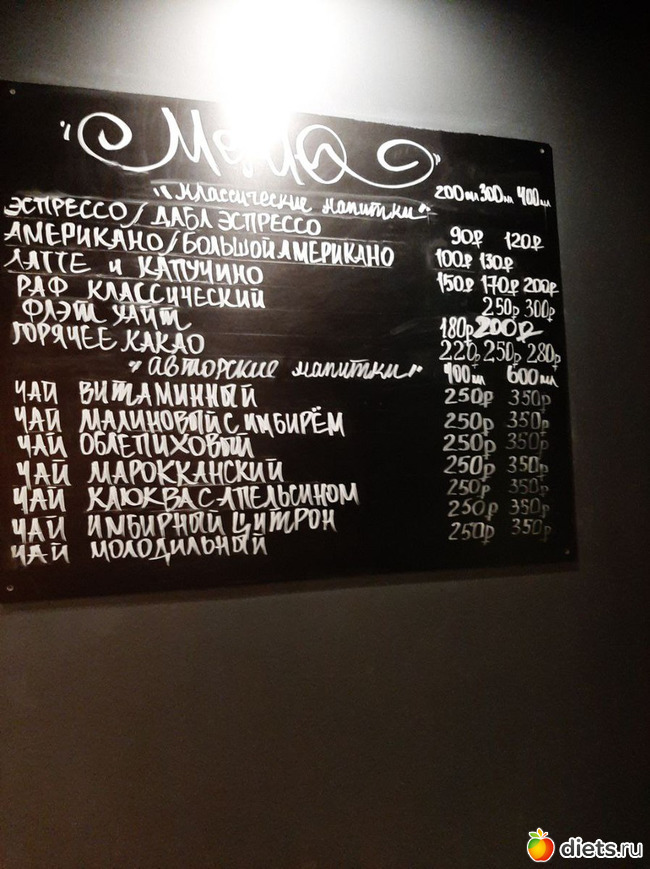 "Меню"
"классические напитки" 200мл 300мл 400мл
ЭСПРЕССО/ДАБЛ ЭСПРЕССО 90₽ 120₽
АМЕРИКАНО/БОЛЬШОЙ АМЕРИКАНО 100₽ 130₽
ЛАТТЕ и КАПУЧИНО 150₽ 170₽ 200₽
РАФ КЛАССИЧЕСКИЙ 250₽ 300₽
ФЛЭТ УАЙТ 180₽ 200₽
ГОРЯЧЕЕ КАКАО 220₽ 250₽ 280₽
"авторские напитки" 400мл 600мл
ЧАЙ ВИТАМИННЫЙ 250₽ 350₽
ЧАЙ МАЛИНОВЫЙ С ИМБИРЁМ 250₽ 350₽
ЧАЙ ОБЛЕПИХОВЫЙ 250₽ 350₽
ЧАЙ МАРОККАНСКИЙ 250₽ 350₽
ЧАЙ КЛЮКВА С АПЕЛЬСИНОМ 250₽ 350₽
ЧАЙ ИМБИРНЫЙ ЦИТРОН 250₽ 350₽
ЧАЙ МОЛОДИЛЬНЫЙ 250₽ 350₽
diets.ru